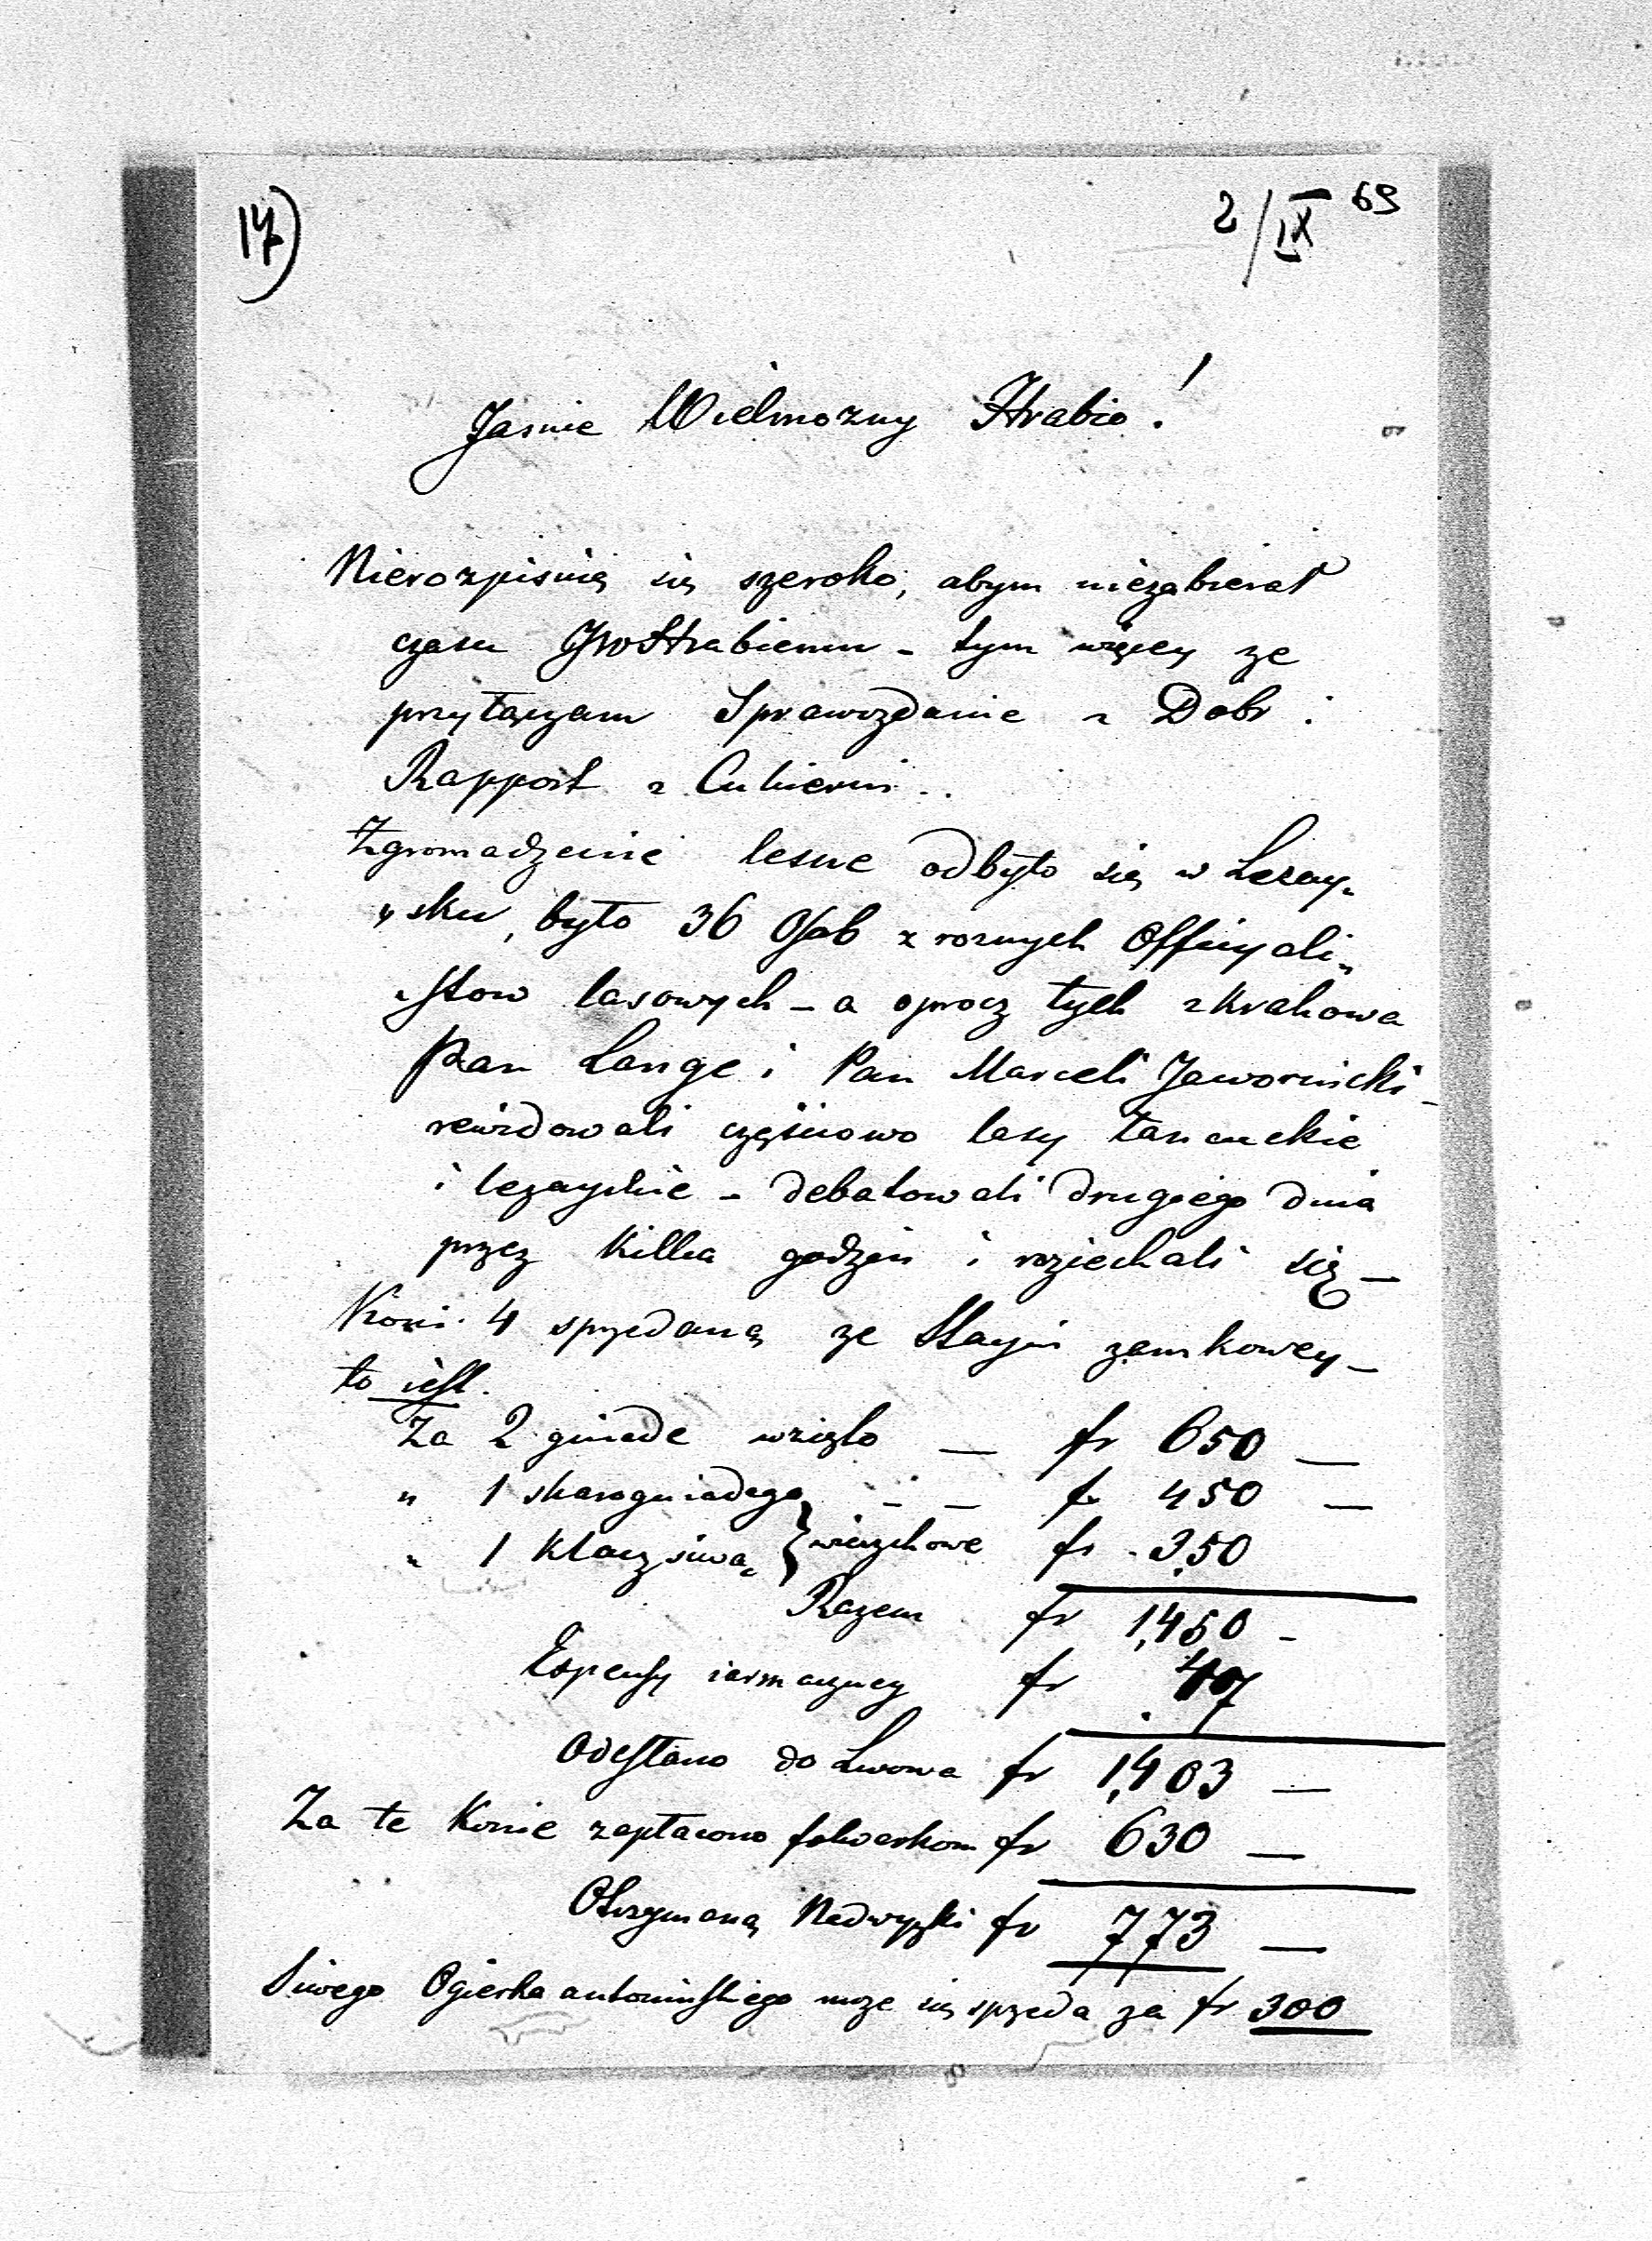 17)
2/IX 69
Jasnie Wielmozny Hrabio!
Nierozpisuię się szeroko, abym niezabierał
czasu JWoHrabiemu - tym więcey ze
przyłączam Sprawozdanie z Dobr i
Rapport z Cukierni..
Zgromadzenie lesne odbyło się w Lezay„
„sku, było 36 Osob z roznych Officyali„
„stow lasowych - a oprocz tych z Krakowa
Pan Lange i Pan Marceli Jawornicki -
rewidowali częściowo lasy Łancuckie
i lezayskie - debatowali drugiego dnia
przez kilka godzin i roziechali się -
Koni 4 sprzedaną ze Stayni zamkowey -
to iest.
Za 2 gniade wzięto — fr 650 —
„ 1 skarogniadego - - fr 450 —
„ 1 Klacz siwą } wierzchowe fr 350
Razem fr 1,450 -
Expensy iarmaczney fr 47
Odesłano do Lwowa fr 1,403 —
Za te Konie zapłacono folwarkom fr 630 —
Otrzymaną Nadwyzki fr 773 —
Siwego Ogierka antoninskiego moze się sprzeda za fr 300